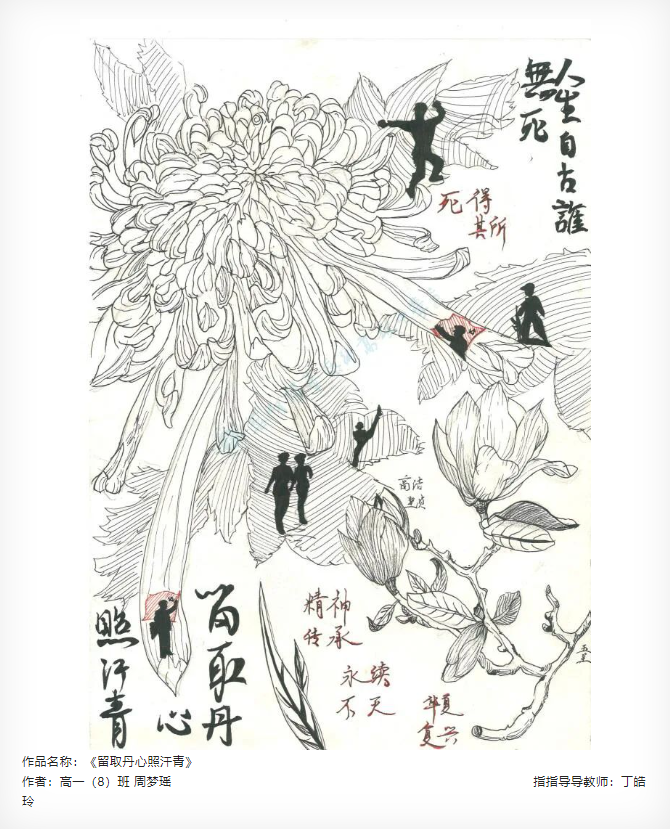 人生自古誰
無死
死得
其所
高洁
坚贞
留取丹
心
照汗青
精神
传承
永续
不灭
华夏
复兴
作品名称：《留取丹心照汗青》
作者：高一（8）班 周梦瑶
指指导导教师：丁皓
玲